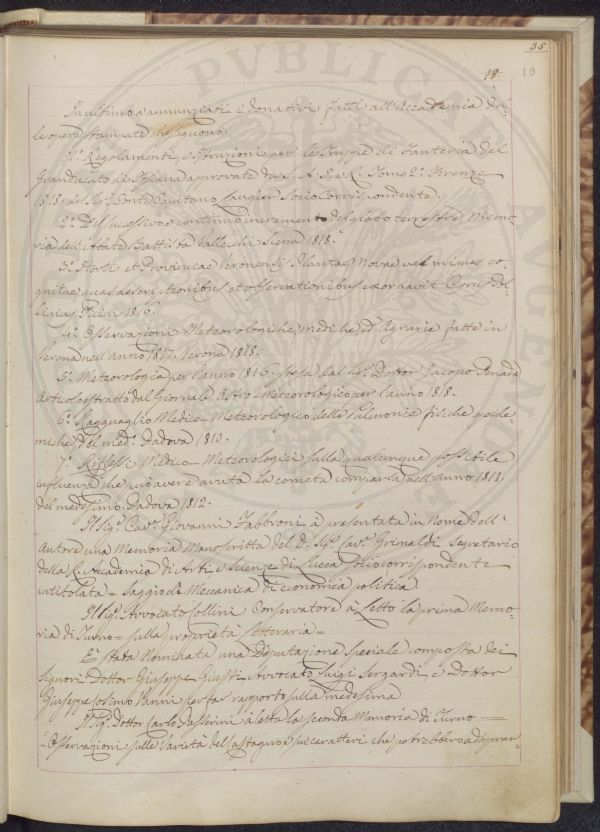 35
18.
19
In ultimo annunziati i donativi fatti all'Accademia del-
le opere stampate che seguono.
1.° Regolamenti, e Istruzioni per le Truppe di Fanteria del
Granducato di Toscana approvate da S. A. I. e R. Tomo 2.° Firenze
1818. del Sig.r Conte Gaetano Laugier Socio Corrispondente.
2.° Del successivo e continuo incremento del globo terrestre Memo-
ria dell'Abate Battista Vallecchi Siena 1818.
3.° Horti et Provinciae Veronensis Plantae Novae vel minus co-
gnitae quas descriptionibus et observationibus exornavit Cyrus Pol-
linius. Ticini 1816.
4.° Osservazioni Meteorologiche, mediche, ed Agrarie fatte in
Verona nell'anno 1817. Verona 1818.
5.° Meteorologia per l'anno 1816. stesa dal Sig. Dottor Jacopo Penada
Articolo estratto dal Giornale Astro-Meteorologico per l'anno 1818.
6.° Ragguaglio Medico-Meteorologico delle Pulmonie fisiche epide-
miche, del med.° Padova 1810.
7.° Riflessi Medico-Meteorologici sulla qualunque possibile
influenza che può avere avuta la cometa comparsa nell'anno 1811.
del medesimo. Padova 1812.
Il Sig.r Cav.r Giovanni Fabbroni à presentata in Nome dell'
Autore una Memoria Manoscritta del D. Sig.r Cav.r Grimaldi Segretario
della R. Accademia di Arti e Scienze di Lucca Socio corrispondente
intitolata = Saggio di Meccanica di economia politica
Il Sig.r Avvocato Collini Conservatore à letto la prima Memo-
ria di Turno = sulla proprietà letteraria =
E' stata Nominata una Deputazione speciale composta dei
Signori Dottor Giuseppe Giusti, Avvocato Luigi Sergardi, e Dottor
Giuseppe Cosimo Vanni per far rapporto sulla medesima
Il Sig.r Dottor Carlo Passerini à letta la seconda Memoria di Turno =
= Osservazioni sulle Varietà del Castagno e sui caratteri che potrebbero adoprar-